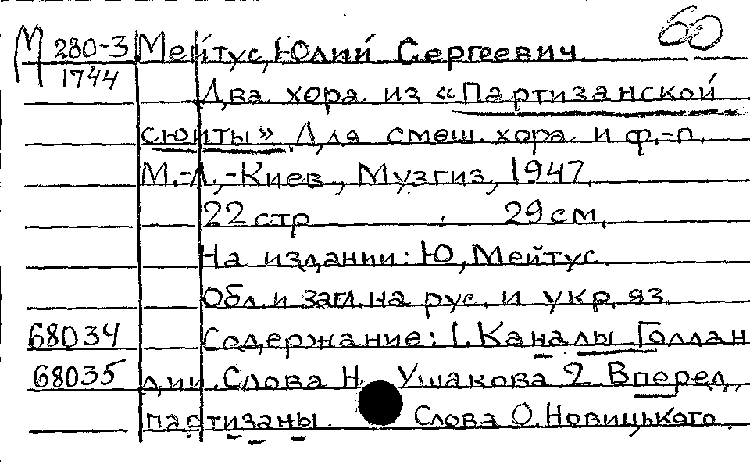 60
М 280-3 Мейтус, Юлий Сергеевич
1744
Два хора из «Партизанской
сюиты». Для смеш. хора и ф.-п.
М.-Л.,-Киев, Музгиз, 1947.
22 стр. 29 см.
На издании: Ю. Мейтус.
Обл. и загл. на рус. и укр. яз.
68034 Содержание: 1. Каналы Голлан
68035 дии. Слова Н. Ушакова 2. Вперед,
партизаны. Слова О. Новицького.